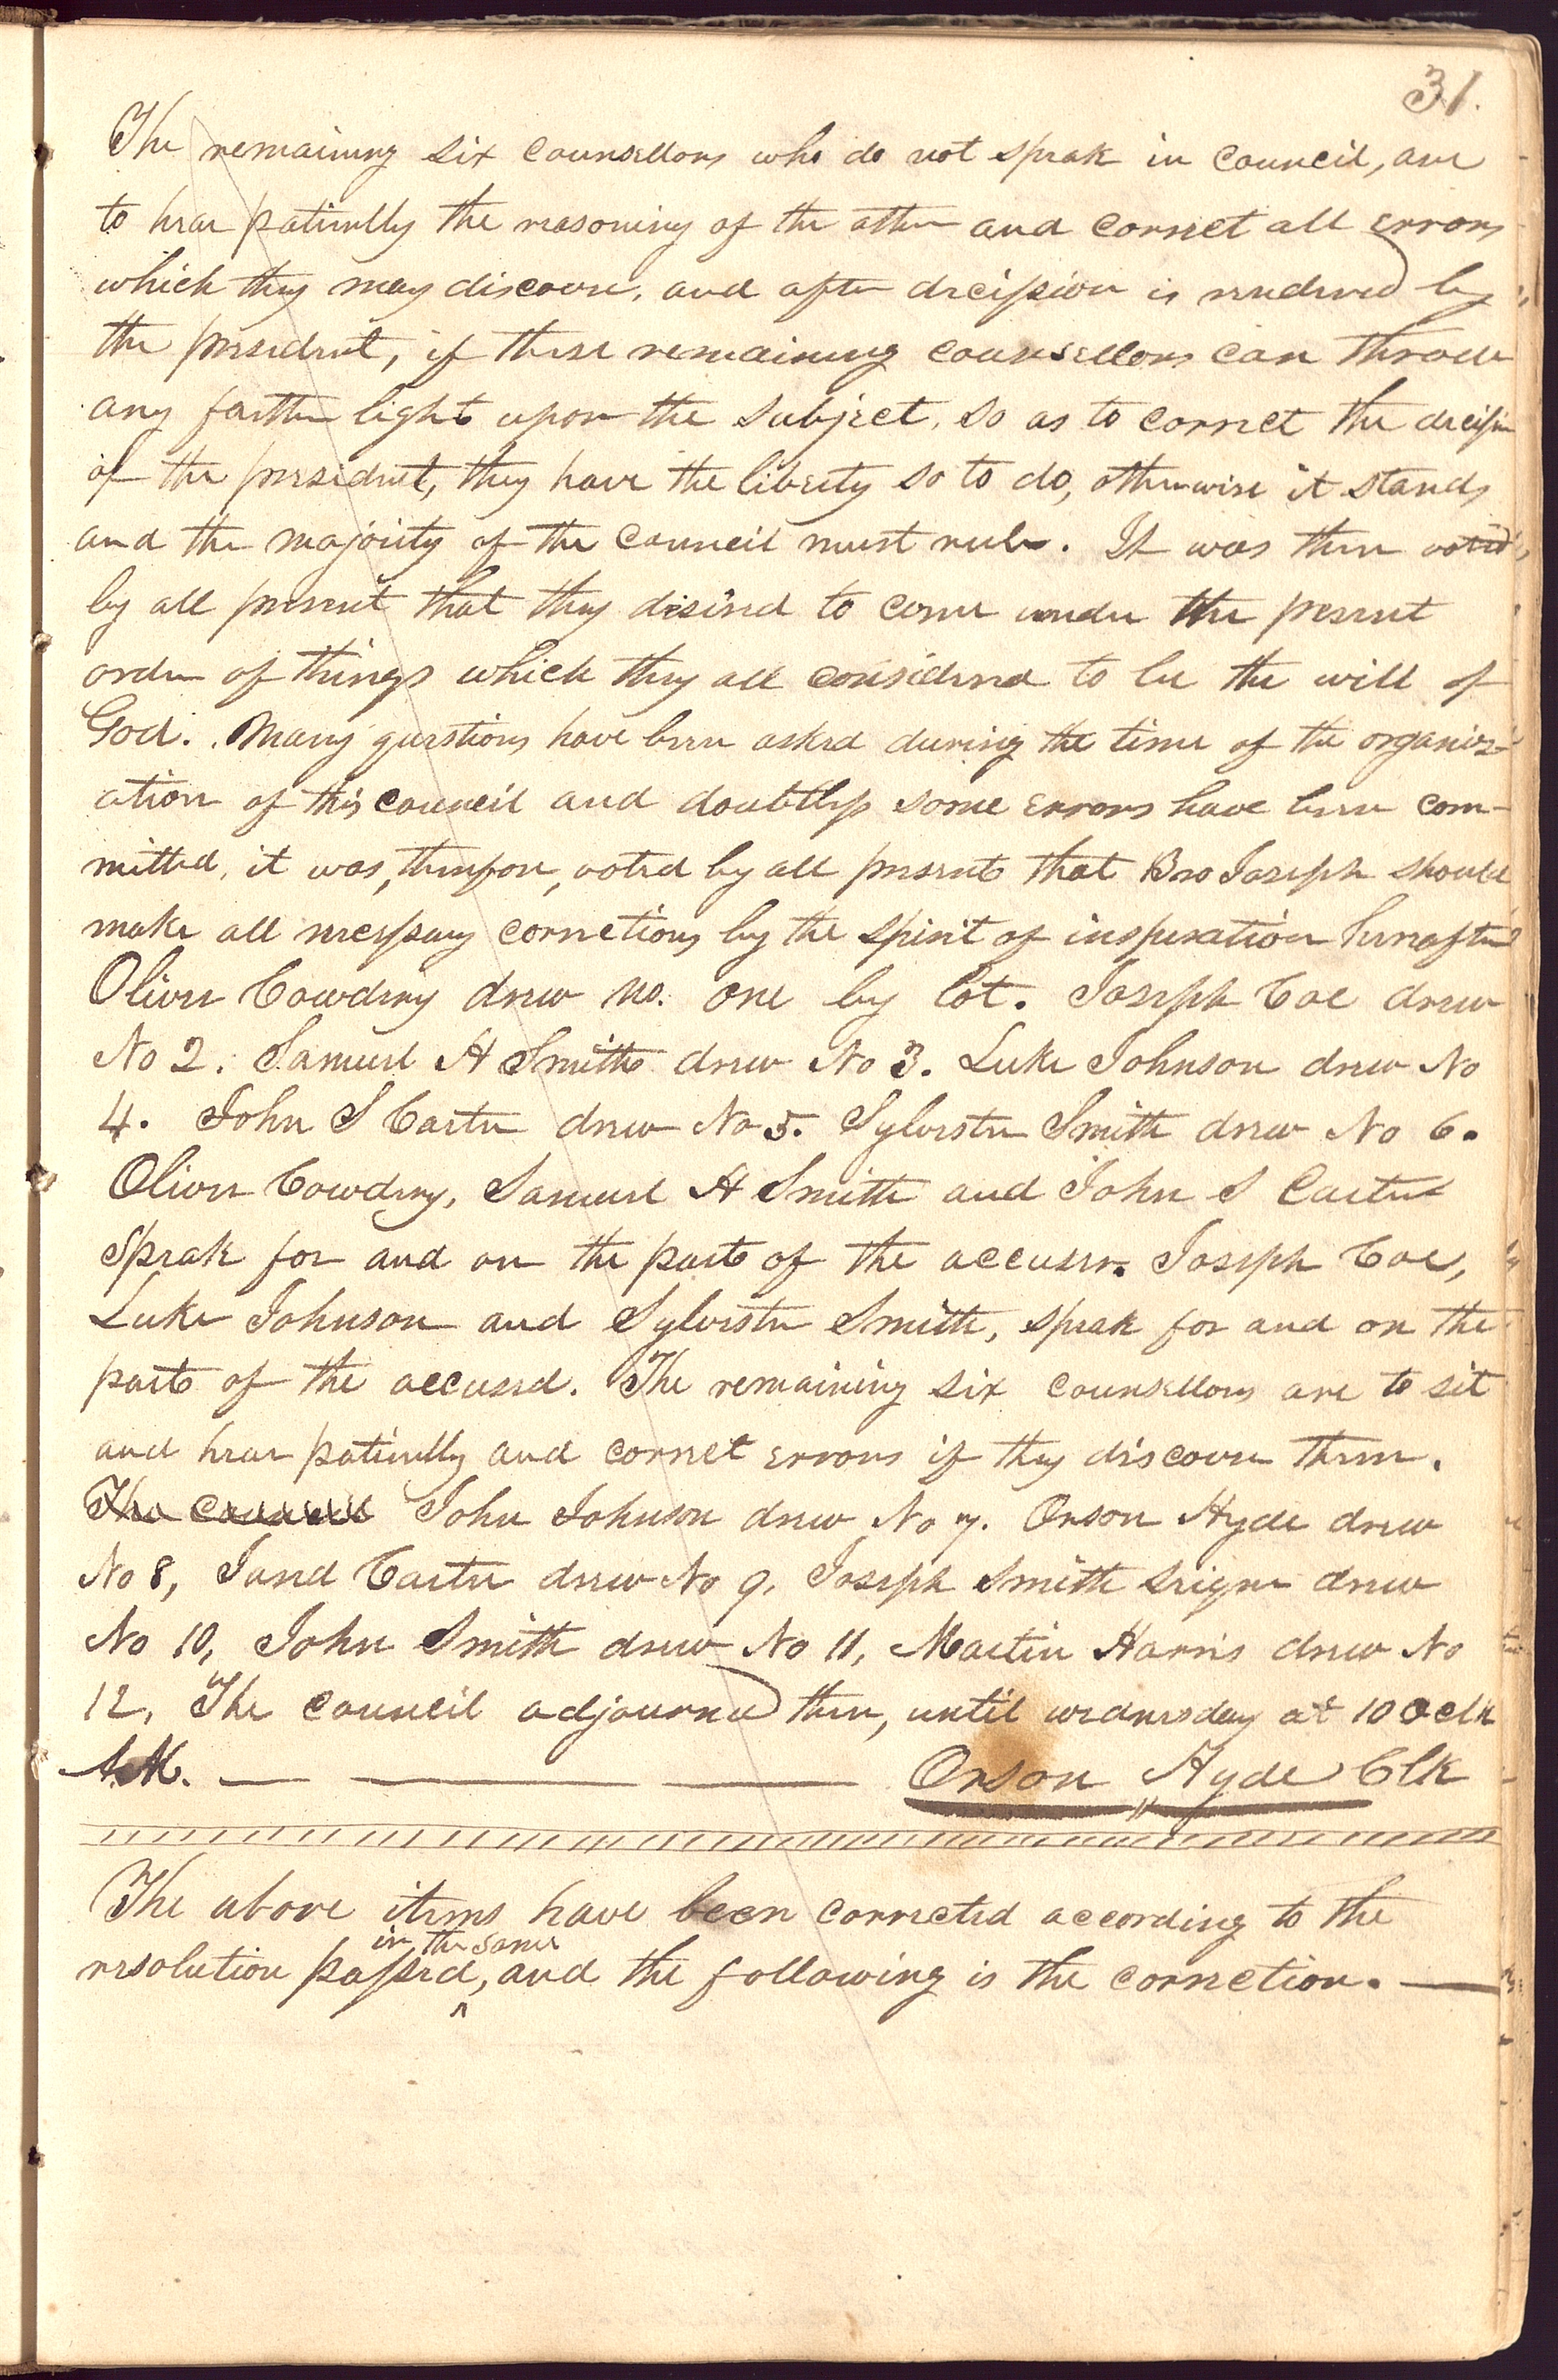 31.
The remaining six counsellors who do not speak in council, are
to hear patiently the reasoning of the other and correct all errors
which they may discover, and after decission is rendered by
the president, if these remaining counsellors can throw
any farther light upon the subject, so as to correct the decission
of the president, they have the liberty so to do, otherwise it stands
and the majority of the council must rule. It was then voted
by all present that they desired to come under the present
order of things which they all considered to be the will of
God. Many questions have been asked during the time of the organiz-
ation of this council and doubtless some errors have been com-
mitted, it was, therefore, voted by all present that Bro Joseph should
make all necessary corrections by the spirit of inspiration hereafter
Oliver Cowdery drew no. one by lot. Joseph Coe drew
No 2. Samuel H Smith drew No 3. Luke Johnson drew No
4. John S Carter drew No 5. Sylvester Smith drew No 6.
Oliver Cowdery, Samuel H Smith and John S Carter
speak for and on the part of the accuser. Joseph Coe,
Luke Johnson and Sylvester Smith, speak for and on the
part of the accused. The remaining six counsellors are to sit
and hear patiently and correct errors if they discover them.
The council John Johnson drew No 7. Orson Hyde drew
No 8, Jared Carter drew No 9, Joseph Smith seignr drew
No 10, John Smith drew No 11, Martin Harris drew No
12, The council adjourned then, until wednesday at 10 oclk
A.M. — — — Orson Hyde Clk
The above items have been corrected according to the
in the same
resolution passed, ^ and the following is the correction. —